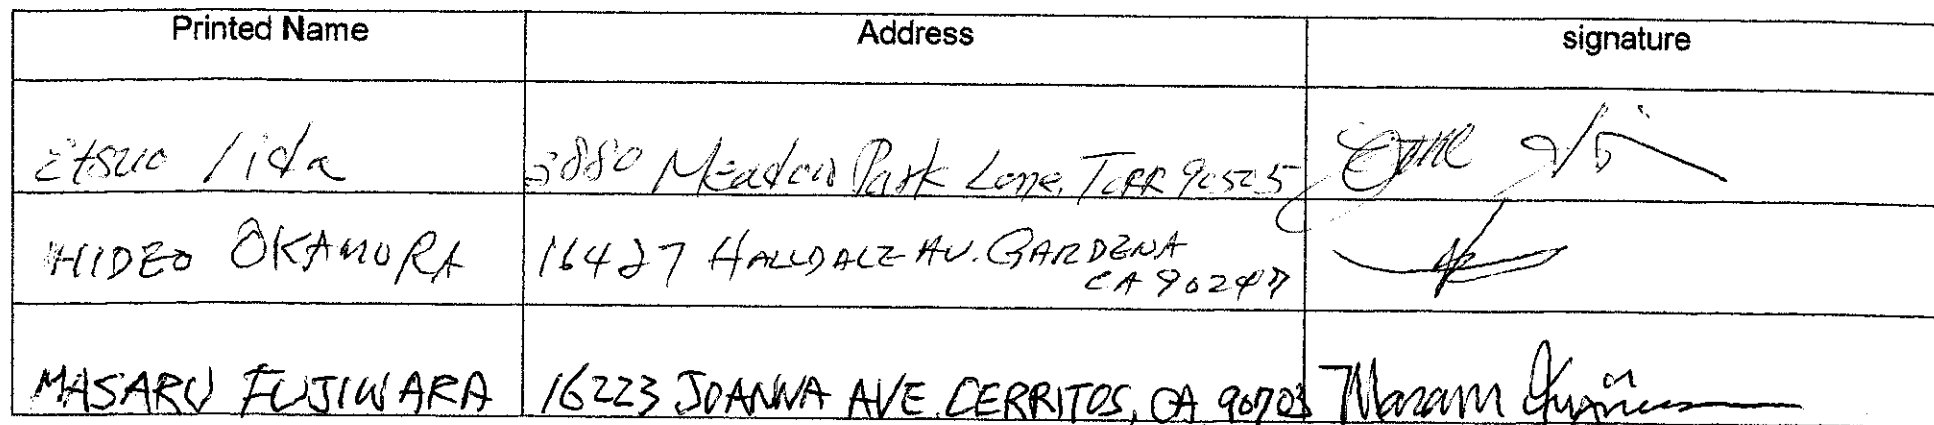 Printed Name Address signature
Etsuo Iida 3880 Meadow Park Lane, TORR 90505
HIDEO OKAMURA 16427 HALLDALE AV. GARDENA
CA 90247
MASARU FUJIWARA 16223 JOANNA AVE. CERRITOS, CA 90703